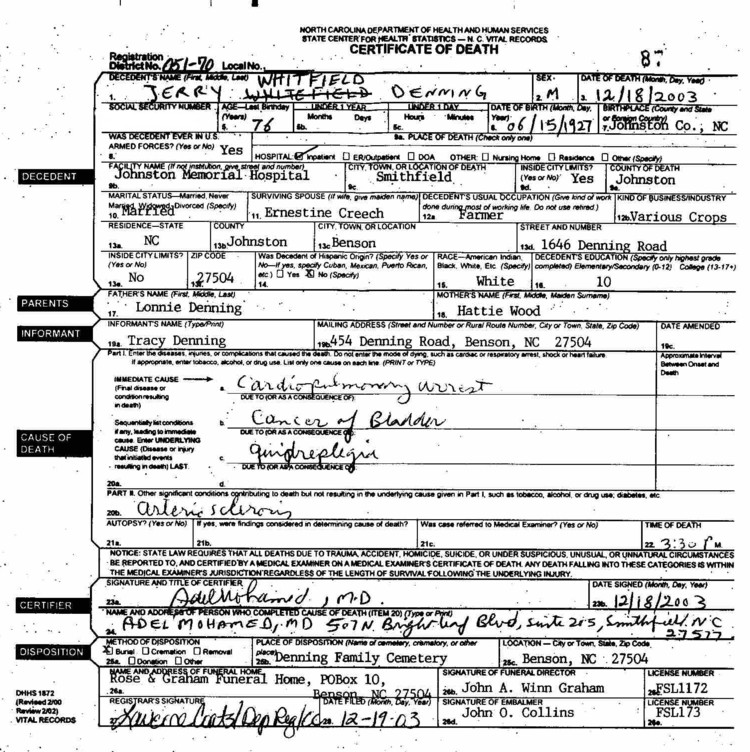 NORTH CAROLINA DEPARTMENT OF HEALTH AND HUMAN SERVICES
STATE CENTER FOR HEALTH STATISTICS — N. C. VITAL RECORDS
CERTIFICATE OF DEATH
Registration
District No. 051-70 Local No. 87
DECEDENT'S NAME (First, Middle, Last) WHITFIELD SEX DATE OF DEATH (Month, Day, Year)
1. JERRY WHITEFIELD DENNING 2. M 3. 12/18/2003
SOCIAL SECURITY NUMBER AGE—Last Birthday UNDER 1 YEAR UNDER 1 DAY DATE OF BIRTH (Month, Day, BIRTHPLACE (County and State
(Years) Months Days Hours Minutes Year) or Foreign Country)
5. 76 5b. 5c. 6. 06/15/1927 7. Johnston Co., NC
WAS DECEDENT EVER IN U.S. 9a. PLACE OF DEATH (Check only one)
ARMED FORCES? (Yes or No) Yes
8. HOSPITAL: Inpatient ER/Outpatient DOA OTHER: Nursing Home Residence Other (Specify)
DECEDENT
FACILITY NAME (If not institution, give street and number) CITY, TOWN, OR LOCATION OF DEATH INSIDE CITY LIMITS? COUNTY OF DEATH
Johnston Memorial Hospital Smithfield (Yes or No) Yes Johnston
9b. 9c. 9d. 9e.
MARITAL STATUS—Married, Never SURVIVING SPOUSE (If wife, give maiden name) DECEDENT'S USUAL OCCUPATION (Give kind of work KIND OF BUSINESS/INDUSTRY
Married, Widowed, Divorced (Specify) done during most of working life. Do not use retired.)
10. Married 11. Ernestine Creech 12a Farmer 12b. Various Crops
RESIDENCE—STATE COUNTY CITY, TOWN, OR LOCATION STREET AND NUMBER
13a. NC 13b. Johnston 13c. Benson 13d. 1646 Denning Road
INSIDE CITY LIMITS? ZIP CODE Was Decedent of Hispanic Origin? (Specify Yes or RACE—American Indian, DECEDENT'S EDUCATION (Specify only highest grade
(Yes or No) No—If yes, specify Cuban, Mexican, Puerto Rican, Black, White, Etc. (Specify) completed) Elementary/Secondary (0-12) College (13-17+)
No 27504 etc.) Yes X No (Specify) White 10
13e. 13f. 14. 15. 16.
PARENTS
FATHER'S NAME (First, Middle, Last) MOTHER'S NAME (First, Middle, Maiden Surname)
17. Lonnie Denning 18. Hattie Wood
INFORMANT
INFORMANT'S NAME (Type/Print) MAILING ADDRESS (Street and Number or Rural Route Number, City or Town, State, Zip Code) DATE AMENDED
19a. Tracy Denning 19b. 454 Denning Road, Benson, NC 27504 19c.
Part I. Enter the diseases, injuries, or complications that caused the death. Do not enter the mode of dying, such as cardiac or respiratory arrest, shock or heart failure. Approximate Interval
If appropriate, enter tobacco, alcohol, or drug use. List only one cause on each line. (PRINT or TYPE) Between Onset and
Death
IMMEDIATE CAUSE a. Cardiopulmonary arrest
(Final disease or
condition resulting DUE TO (OR AS A CONSEQUENCE OF):
in death)
Sequentially list conditions b. Cancer of Bladder
if any, leading to immediate DUE TO (OR AS A CONSEQUENCE OF):
CAUSE OF DEATH
cause. Enter UNDERLYING
CAUSE (Disease or injury c. quidreplegia
that initiated events DUE TO (OR AS A CONSEQUENCE OF):
resulting in death) LAST.
20a. d.
PART II. Other significant conditions contributing to death but not resulting in the underlying cause given in Part I, such as tobacco, alcohol, or drug use, diabetes, etc
20b. arteriosclerosis
AUTOPSY? (Yes or No) If yes, were findings considered in determining cause of death? Was case referred to Medical Examiner? (Yes or No) TIME OF DEATH
21a. 21b. 21c. 22. 3:30 P M
NOTICE: STATE LAW REQUIRES THAT ALL DEATHS DUE TO TRAUMA, ACCIDENT, HOMICIDE, SUICIDE, OR UNDER SUSPICIOUS, UNUSUAL, OR UNNATURAL CIRCUMSTANCES
BE REPORTED TO, AND CERTIFIED BY A MEDICAL EXAMINER ON A MEDICAL EXAMINER'S CERTIFICATE OF DEATH. ANY DEATH FALLING INTO THESE CATEGORIES IS WITHIN
THE MEDICAL EXAMINER'S JURISDICTION REGARDLESS OF THE LENGTH OF SURVIVAL FOLLOWING THE UNDERLYING INJURY.
CERTIFIER
SIGNATURE AND TITLE OF CERTIFIER DATE SIGNED (Month, Day, Year)
23a. Adel Mohamed, M.D. 23b. 12/18/2003
NAME AND ADDRESS OF PERSON WHO COMPLETED CAUSE OF DEATH (ITEM 20) (Type or Print)
24. ADEL MOHAMED, MD 507 N. Brightleaf Blvd, Suite 205, Smithfield, NC
27577
DISPOSITION
METHOD OF DISPOSITION PLACE OF DISPOSITION (Name of cemetery, crematory, or other LOCATION — City or Town, State, Zip Code
X Burial Cremation Removal place)
25a. Donation Other 25b. Denning Family Cemetery 25c. Benson, NC 27504
NAME AND ADDRESS OF FUNERAL HOME SIGNATURE OF FUNERAL DIRECTOR LICENSE NUMBER
Rose & Graham Funeral Home, POBox 10,
26a. Benson, NC 27504 26b. John A. Winn Graham FSL1172
DHHS 1872
(Revised 2/00
Review 2/02)
VITAL RECORDS
REGISTRAR'S SIGNATURE DATE FILED (Month, Day, Year) SIGNATURE OF EMBALMER LICENSE NUMBER
27. Laverne Coats/Dep Reg/ 28. 12-19-03 26d. John O. Collins 26e. FSL173